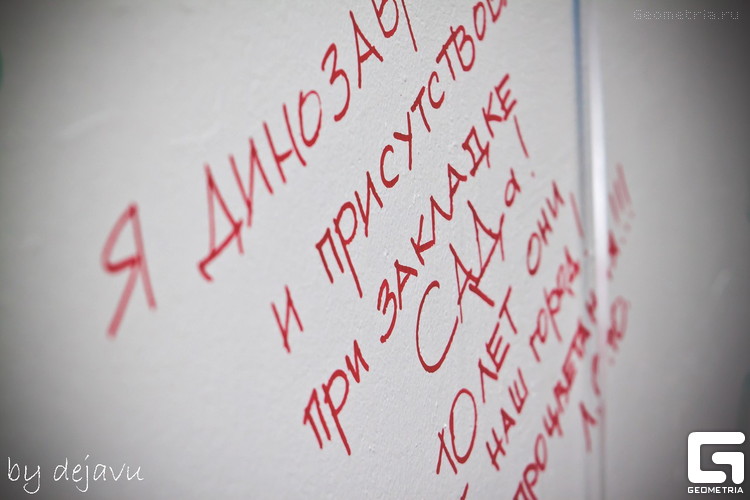 Geometria.ru
Я ДИНОЗАВР
и ПРИСУТСТВОВ
ПРИ ЗАКЛАДКЕ
САДа!
10 ЛЕТ ОНИ
НАШ город!
by dejavu
GEOMETRIA